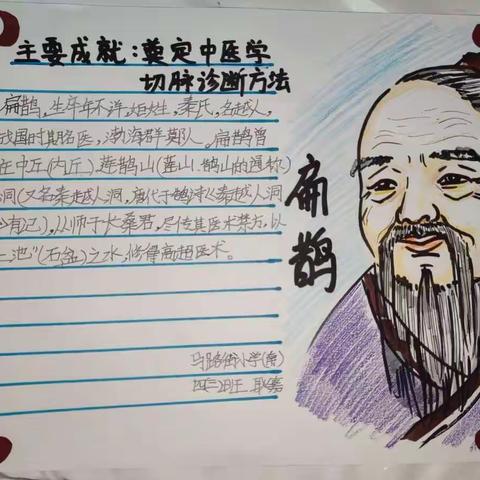 主要成就:奠定中医学
切脉诊断方法
扁鹊,生卒年不详,姬姓,秦氏,名越人,
战国时期名医,渤海郡莫人。扁鹊曾
在中丘(内丘)蓬鹊山(蓬山、鹊山的
洞(又名秦越人洞,唐代于鹄诗《秦越人洞
有记),从师于长桑君,尽传其医术禁方,以
池"()之水,修得高超医术。
马路街小学(
四(三)班
扁鹊